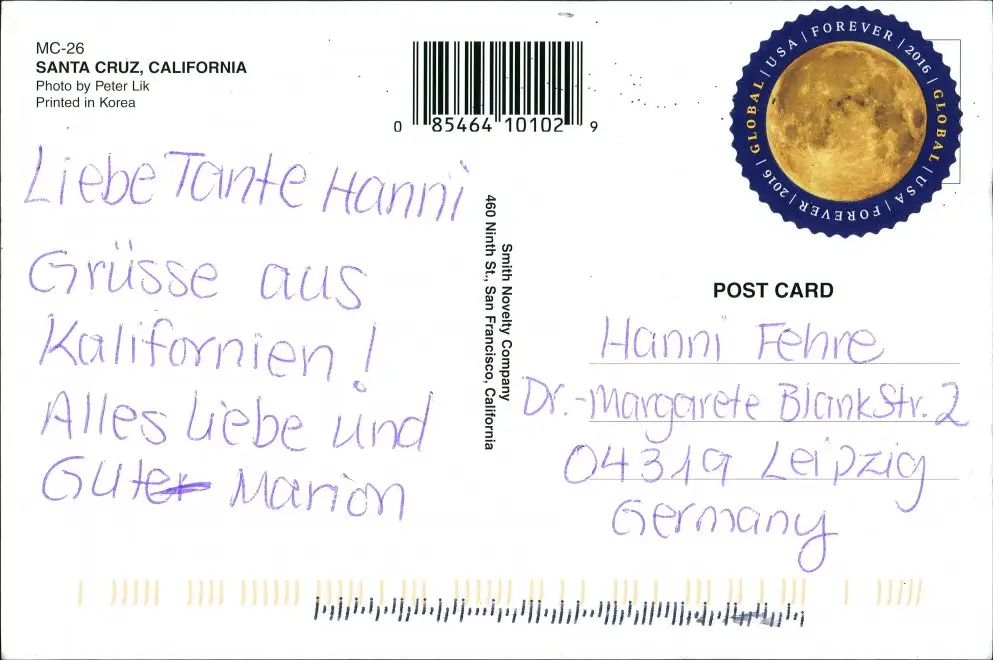 MC-26
SANTA CRUZ, CALIFORNIA
Photo by Peter Lik
Printed in Korea
0 85464 10102 9
GLOBAL | USA | FOREVER | 2016 | GLOBAL | USA | FOREVER | 2016 |
Liebe Tante Hanni
Grüsse aus
Kalifornien!
Alles Liebe und
Guter Marion
Smith Novelty Company
460 Ninth St., San Francisco, California
POST CARD
Hanni Fehre
Dr.-Margarete Blank Str. 2
04319 Leipzig
Germany